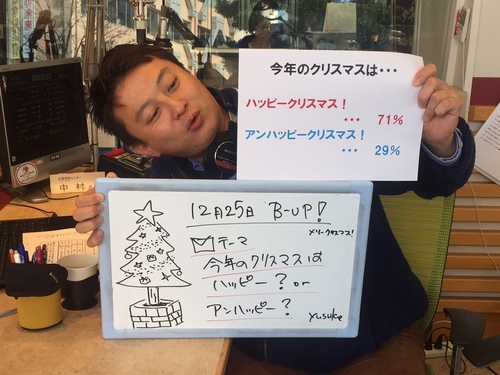 今年のクリスマスは・・・
ハッピークリスマス！
・・・ 71%
アンハッピークリスマス！
・・・ 29%
中村
12月25日 B-UP!
メリークリスマス!
テーマ
今年のクリスマスは
ハッピー？or
アンハッピー？
yusuke